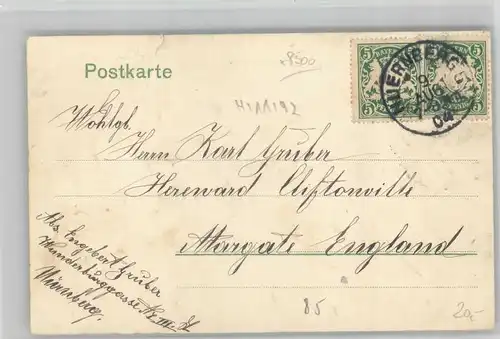 +8500
Postkarte
H111192
5 BAYERN 5 5 BAYERN 5
NUERNBERG
AUG
04
Wohlgb.
Herrn Karl Gruber
Hereward Cliftonville
Margate England
Abs. Engelbert Gruber
Wunderburggasse
Nürnberg.
85
20,-